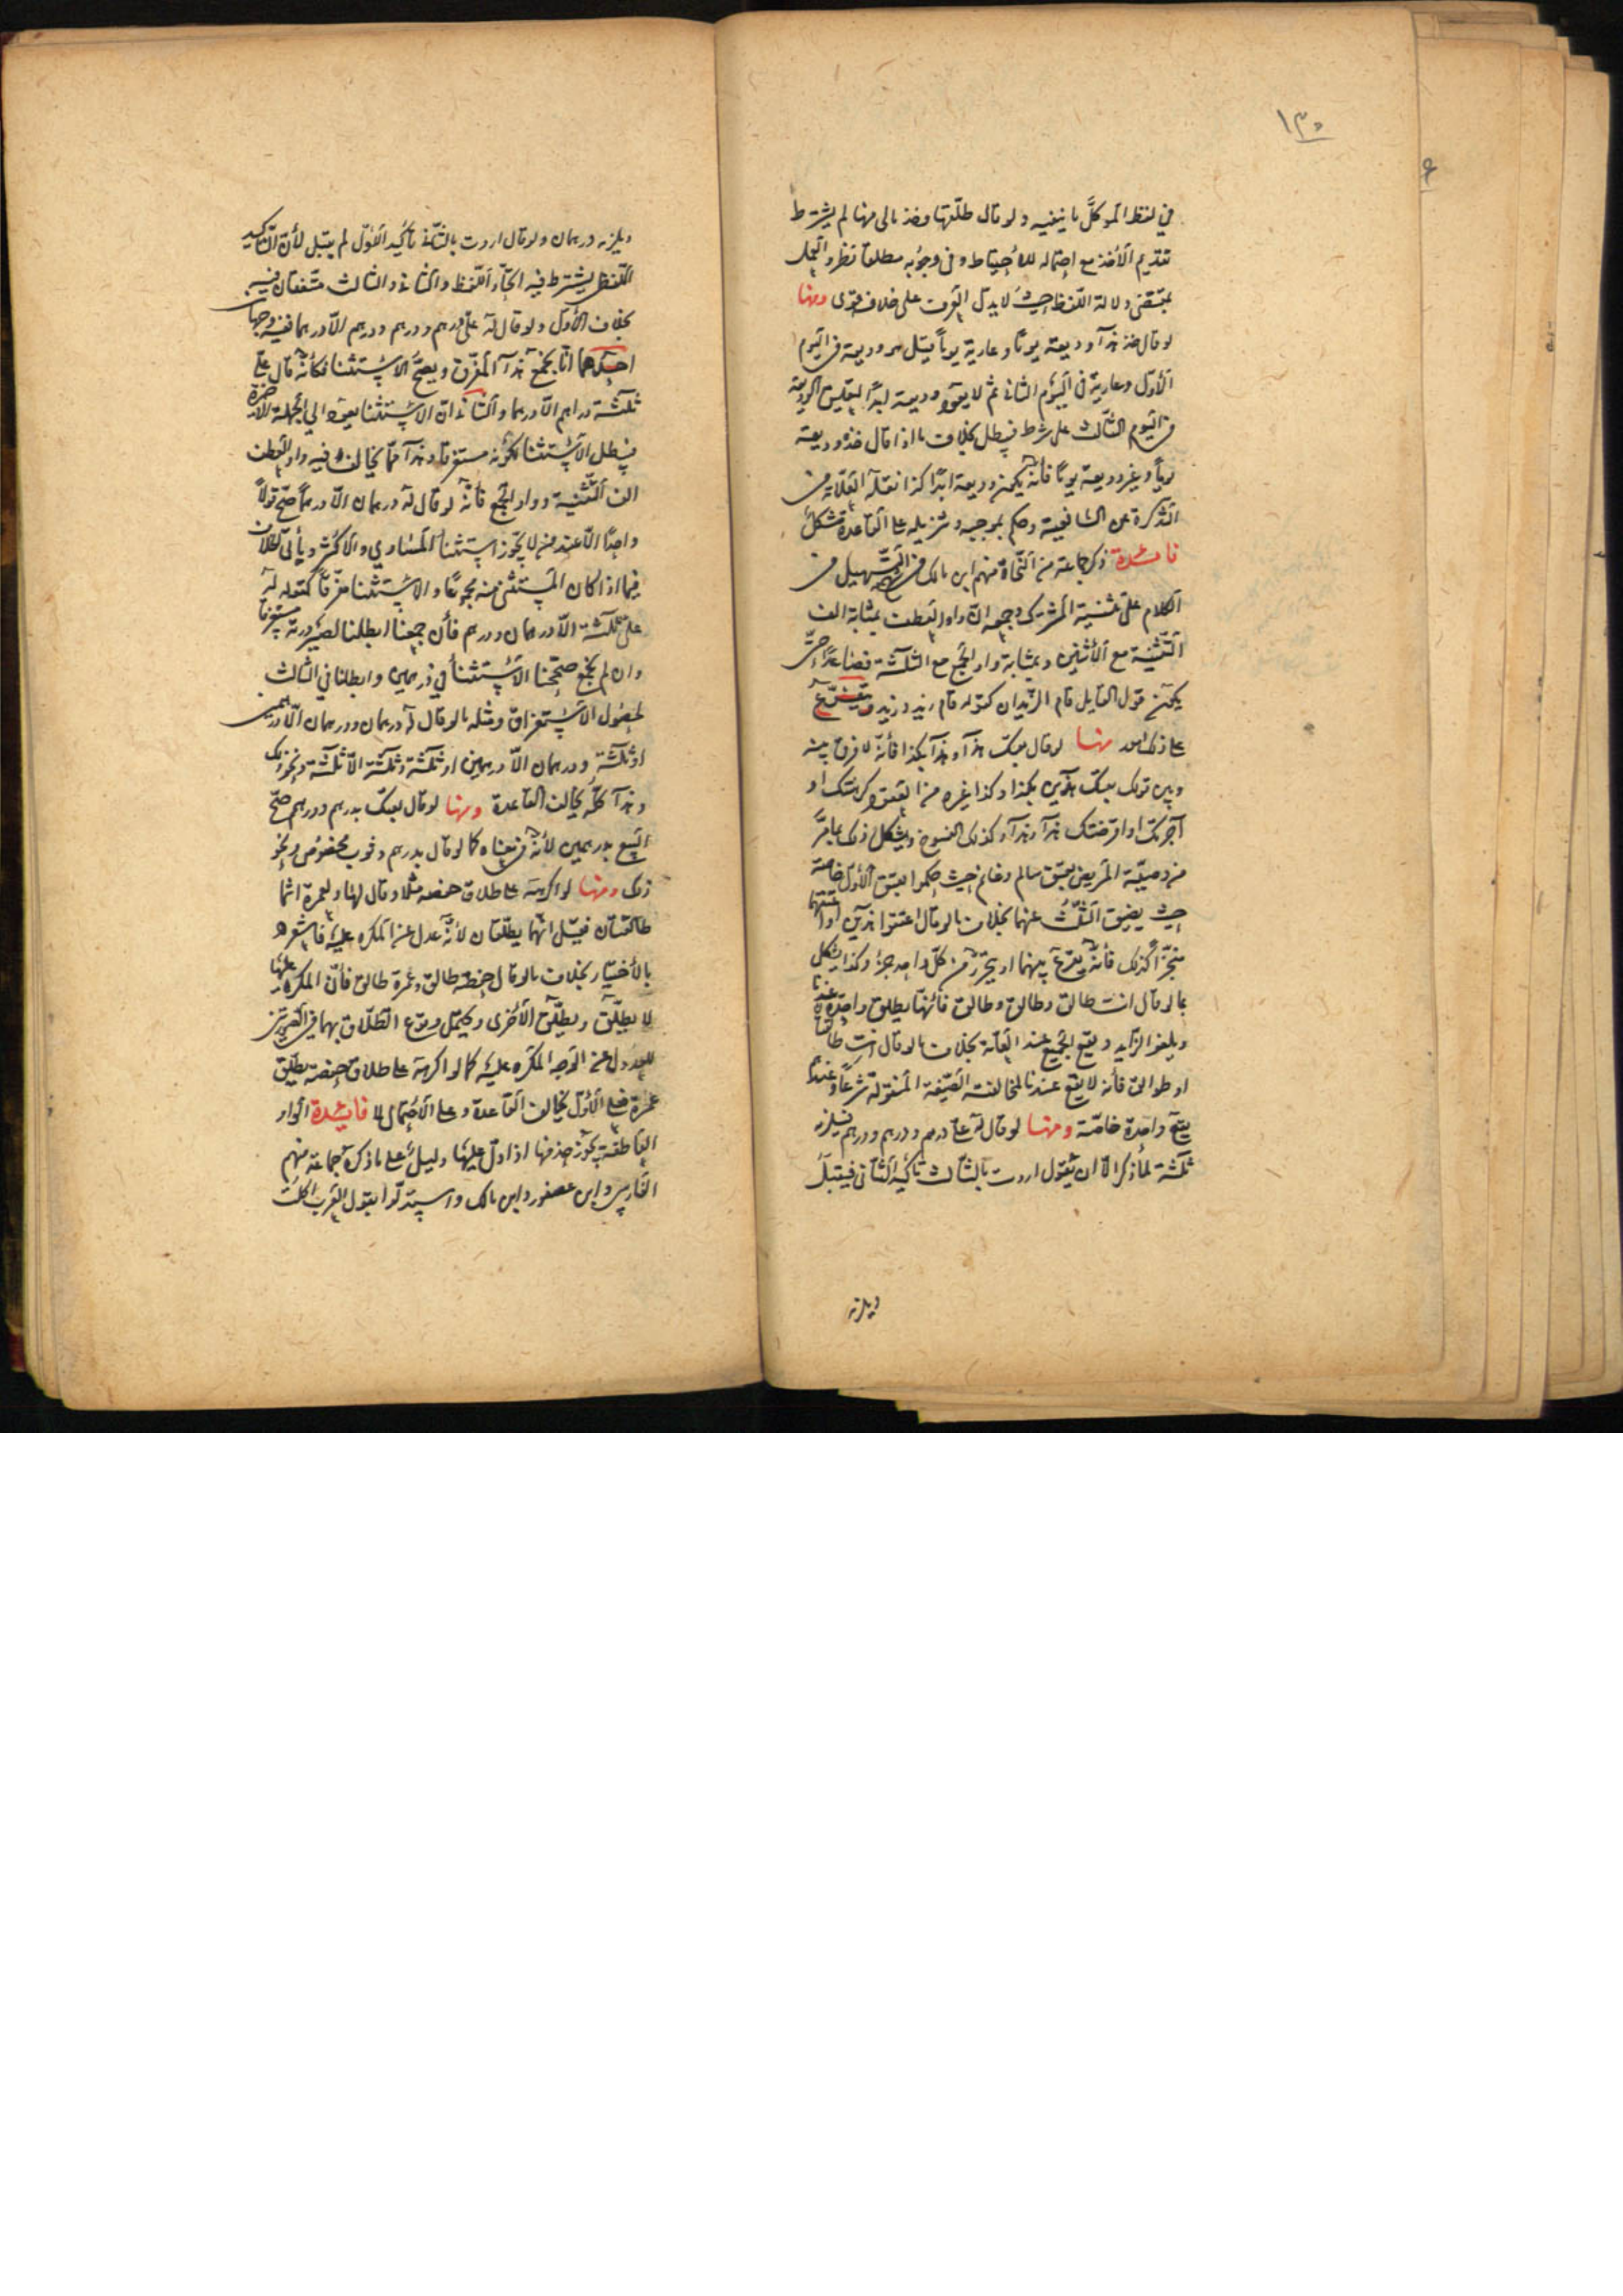 ١٣٥
في لفظ الموكل ما ينفيه ولو قال طلقها وخذ مالى منها لم يشترط
تقديم الأخذ مع احتماله للاحتياط وفى وجوبه مطلقا نظر والعمل
بمقتضى دلالة اللفظ حيث لا يدل العرف على خلافه قوى ومنها
لو قال خذ هذا وديعة يوما وعارية يوما قيل هو وديعة فى اليوم
الأول وعارية فى اليوم الثانى ثم لا يعود وديعة ابدا لتعليق الوديعة
فى اليوم الثالث على شرط فيبطل بخلاف ما اذا قال خذه وديعة
يوما وغير وديعة يوما فانه يكون وديعة ابدا كذا نقله العلامة فى
التذكرة عن الشافعية وحكم بموجبه وتنزيله على القاعدة مشكل
فائدة ذكر جماعة من النحاة منهم ابن مالك فى شرح التسهيل فى
الكلام على تثنية المشترك وجمعه ان واو العطف بمثابة الف
التثنية مع الاثنين وبمثابة واو الجمع مع الثلثة فصاعدا حتى
يكون قول القايل قام الزيدان كقوله قام زيد وزيد ويتفرع
على ذلك امور منها لو قال بعتك هذا وهذا بكذا فانه لا فرق بينه
وبين قولك بعتك هذين بكذا وكذا غيره من العقود كرهنتك او
آجرتك او اقرضتك هذا وهذا وكذلك الفسوخ ويشكل ذلك بما مر
من وصية المريض بعتق سالم وغانم حيث حكموا بعتق الأول خاصة
حيث يضيق الثلث عنهما بخلاف ما لو قال اعتقوا هذين او اعتقهما
منجزا كذلك فانه يقرع بينهما او يحرر من كل واحد جزء وكذا يشكل
بما لو قال انت طالق وطالق وطالق فانها يطلق واحدة عندنا
ويلغو الزايد ويقع الجميع عند العامة بخلاف ما لو قال انت طالق
او طوالق فانه لا يقع عندنا لمخالفته الصيغة المنقولة شرعا وعندهم
يقع واحدة خاصة ومنها لو قال له على درهم ودرهم ودرهم فيلزمه
ثلثة لما ذكر الا ان يقول اردت بالثالث تأكيد الثانى فيقبل
ويلزمه
ويلزمه درهمان ولو قال اردت بالثانى تأكيد الأول لم يقبل لأن التأكيد
اللفظى يشترط فيه اتحاد اللفظ والثانى والثالث متفقان فيه
بخلاف الأول ولو قال له على درهم ودرهم ودرهم الا درهما ففيه وجهان
احدهما انا نجمع هذا المفرق ويصح الاستثنا فكأنه قال على
ثلثة دراهم الا درهما والثانى ان الاستثنا يعود الى الجملة الاخيرة
فيبطل الاستثنا لكونه مستغرقا وهذا مما يخالف فيه واو العطف
الف التثنية وواو الجمع فانه لو قال له درهمان الا درهما صح قولا
واحدا الا عند من لا يجوز استثنا المساوي والاكثر ويأتى البطلان
فيما اذا كان المستثنى منه مجموعا والاستثنا مفرقا كقوله له
على ثلثة الا درهمان ودرهم فان جمعنا ابطلنا لصيرورته مستغرقا
وان لم نجمع صححنا الاستثنا في درهمين وابطلنا في الثالث
لحصول الاستغراق ومثله ما لو قال له درهمان ودرهمان الا درهمين
او ثلثة ودرهمان الا درهمين او ثلثة وثلثة الا ثلثة ونحو ذلك
وهذا كله يخالف القاعدة ومنها لو قال بعتك بدرهم ودرهم صح
البيع بدرهمين لأنه فى معناه كما لو قال بدرهم وثوب مخصوص ونحو
ذلك ومنها لو اكرهه على طلاق حفصه مثلا وقال لها ولعمرة انتما
طالقتان فقيل انهما يطلقان لأنه عدل عن المكره عليه فاشعر
بالأختيار بخلاف ما لو قال حفصة طالق وعمرة طالق فان المكره عليها
لا يطلق ويطلق الأخرى ويحتمل وقوع الطلاق بهما فى الصورتين
للعدول عن الوجه المكره عليه كما لو اكرهه على طلاق حفصة فطلق
عمرة فعلى الأول يخالف القاعدة وعلى الاحتمال لا فايدة الواو
العاطفة يجوز حذفها اذا دل عليها دليل على ما ذكره جماعة منهم
الفارسى وابن عصفور وابن مالك واستدلوا بقول العرب اكلت